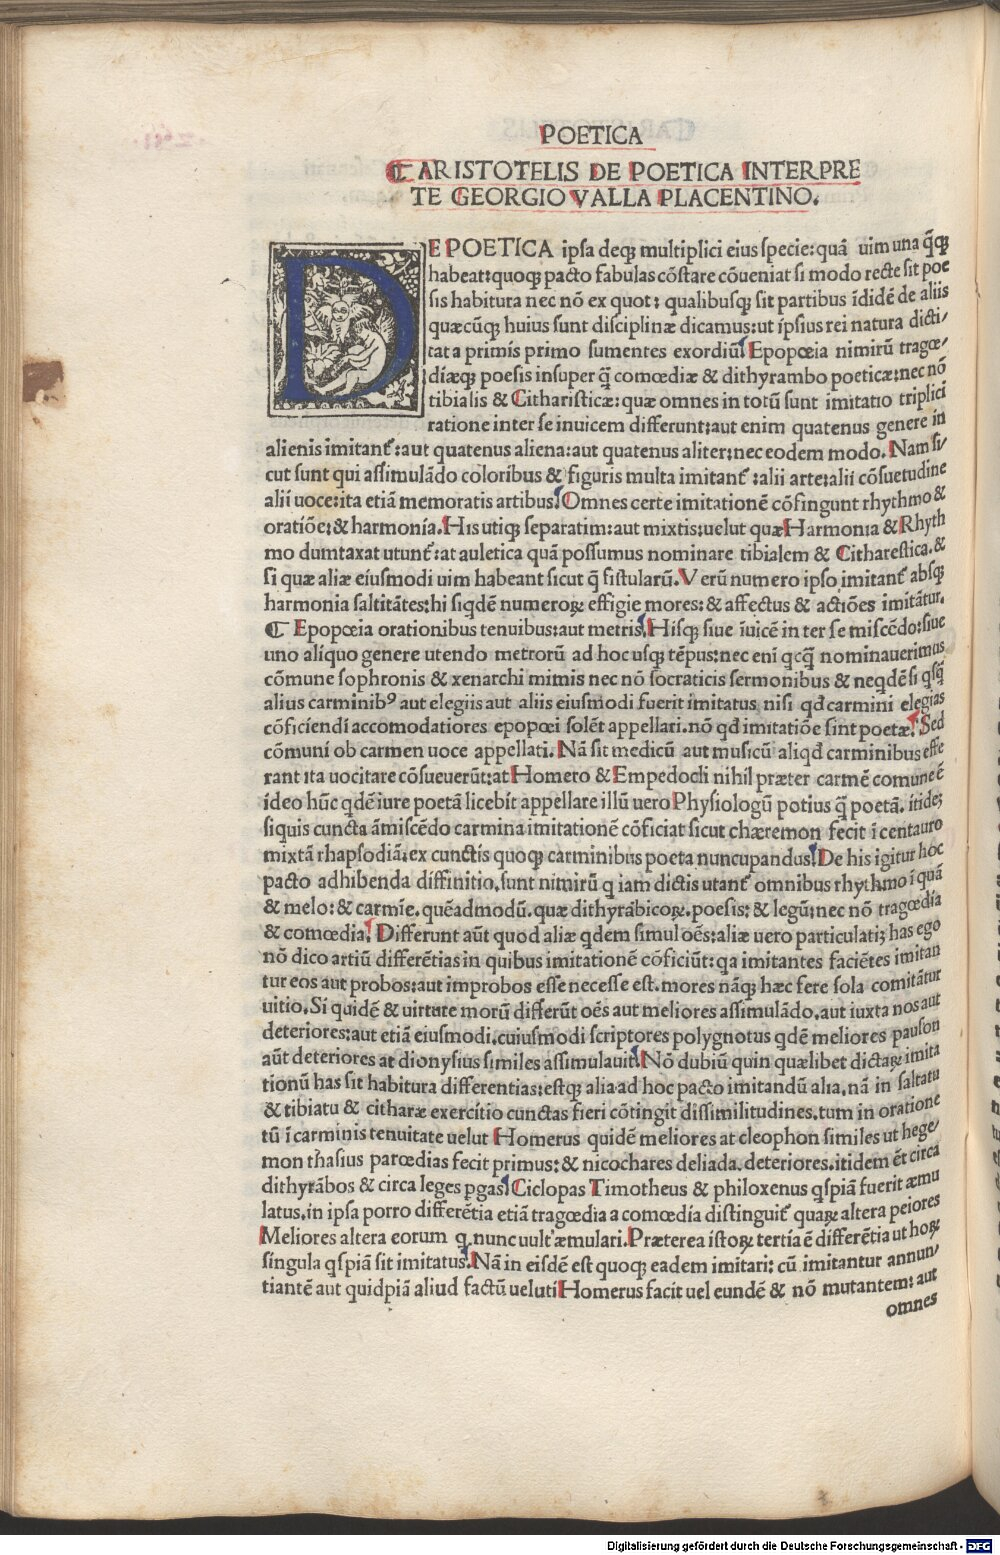 POETICA
⁋ ARISTOTELIS DE POETICA INTERPRE
TE GEORGIO VALLA PLACENTINO.
DE POETICA ipsa deqꝫ multiplici eius specie: quã uim una q̃qꝫ
habeat: quoqꝫ pacto fabulas cõstare cõueniat si modo recte sit poe
sis habitura nec nõ ex quot: qualibusqꝫ sit partibus ĩdidẽ de aliis
quæcũqꝫ huius sunt disciplinæ dicamus: ut ipsius rei natura dicti/
tat a primis primo sumentes exordiũ. Epopœia nimirũ tragœ/
diæqꝫ poesis insuper q̃ comœdiæ & dithyrambo poeticæ: nec nõ
tibialis & Citharisticæ: quæ omnes in totũ sunt imitatio triplici
ratione inter se inuicem differunt: aut enim quatenus genere in
alienis imitant᷑: aut quatenus aliena: aut quatenus aliter: nec eodem modo. Nam si/
cut sunt qui assimulãdo coloribus & figuris multa imitant᷑: alii arte: alii cõsuetudine
alii uoce: ita etiã memoratis artibus. Omnes certe imitationẽ cõfingunt rhythmo &
oratiõe: & harmonia. His utiqꝫ separatim: aut mixtis: uelut quæ Harmonia & Rhyth
mo dumtaxat utunt᷑: at auletica quã possumus nominare tibialem & Citharestica. &
si quæ aliæ eiusmodi uim habeant sicut q̃ fistularũ. Verũ numero ipso imitant᷑ absqꝫ
harmonia saltitãtes: hi siqdẽ numeroꝝ effigie mores: & affectus & actiões imitãtur.
⁋ Epopœia orationibus tenuibus: aut metris. Hisqꝫ siue ĩuicẽ in ter se miscẽdo: siue
uno aliquo genere utendo metrorũ ad hoc usqꝫ tẽpus: nec eni qcq̃ nominauerimus
cõmune sophronis & xenarchi mimis nec nõ socraticis sermonibus & neqdẽ si qsq̃
alius carminibꝰ aut elegiis aut aliis eiusmodi fuerit imitatus nisi qđ carmini elegias
cõficiendi accomodatiores epopœi solẽt appellari. nõ qđ imitatiõe sint poetæ. Sed
cõmuni ob carmen uoce appellati. Nã sit medicũ aut musicũ aliqđ carminibus effe
rant ita uocitare cõsueuerũt: at Homero & Empedocli nihil præter carmẽ comune ẽ
ideo hũc qdẽ iure poetã licebit appellare illũ uero Physiologũ potius q̃ poetã. itideꝫ
siquis cuncta ãmiscẽdo carmina imitationẽ cõficiat sicut chæremon fecit ĩ centauro
mixtã rhapsodiã: ex cunctis quoqꝫ carminibus poeta nuncupandus. De his igitur hoc
pacto adhibenda diffinitio. sunt nimirũ q iam dictis utant᷑ omnibus rhythmo ĩ quã
& melo: & carmĩe. quẽadmodũ. quæ dithyrãbicoꝝ. poesis: & legũ: nec nõ tragœdia
& comœdia. Differunt aũt quod aliæ qdem simul oẽs: aliæ uero particulatiꝫ has ego
nõ dico artiũ differẽtias in quibus imitationẽ cõficiũt: qa imitantes faciẽtes imitan
tur eos aut probos: aut improbos esse necesse est. mores nãqꝫ hæc fere sola comitãtur
uitio. Si quidẽ & uirtute morũ differũt oẽs aut meliores assimulãdo. aut iuxta nos aut
deteriores: aut etiã eiusmodi. cuiusmodi scriptores polygnotus qdẽ meliores pauson
aũt deteriores at dionysius similes assimulauit. Nõ dubiũ quin quælibet dictaꝝ imita
tionũ has sit habitura differentias: estqꝫ alia ad hoc pacto imitandũ alia. nã in saltatu
& tibiatu & citharæ exercitio cunctas fieri cõtingit dissimilitudines. tum in oratione
tũ ĩ carminis tenuitate uelut Homerus quidẽ meliores at cleophon similes ut hege/
mon thasius parœdias fecit primus: & nicochares deliada. deteriores. itidem ẽt circa
dithyrãbos & circa leges pgas. Ciclopas Timotheus & philoxenus qspiã fuerit æmu
latus. in ipsa porro differẽtia etiã tragœdia a comœdia distinguit᷑ quaꝝ altera peiores
Meliores altera eorum q nunc uult æmulari. Præterea istoꝝ tertia ẽ differẽtia ut hoꝝ
singula qspiã sit imitatus. Nã in eisdẽ est quoqꝫ eadem imitari: cũ imitantur annun/
tiantẽ aut quidpiã aliud factũ ueluti Homerus facit uel eundẽ & nõ mutantem: aut
omnes
Digitalisierung gefördert durch die Deutsche Forschungsgemeinschaft - DFG